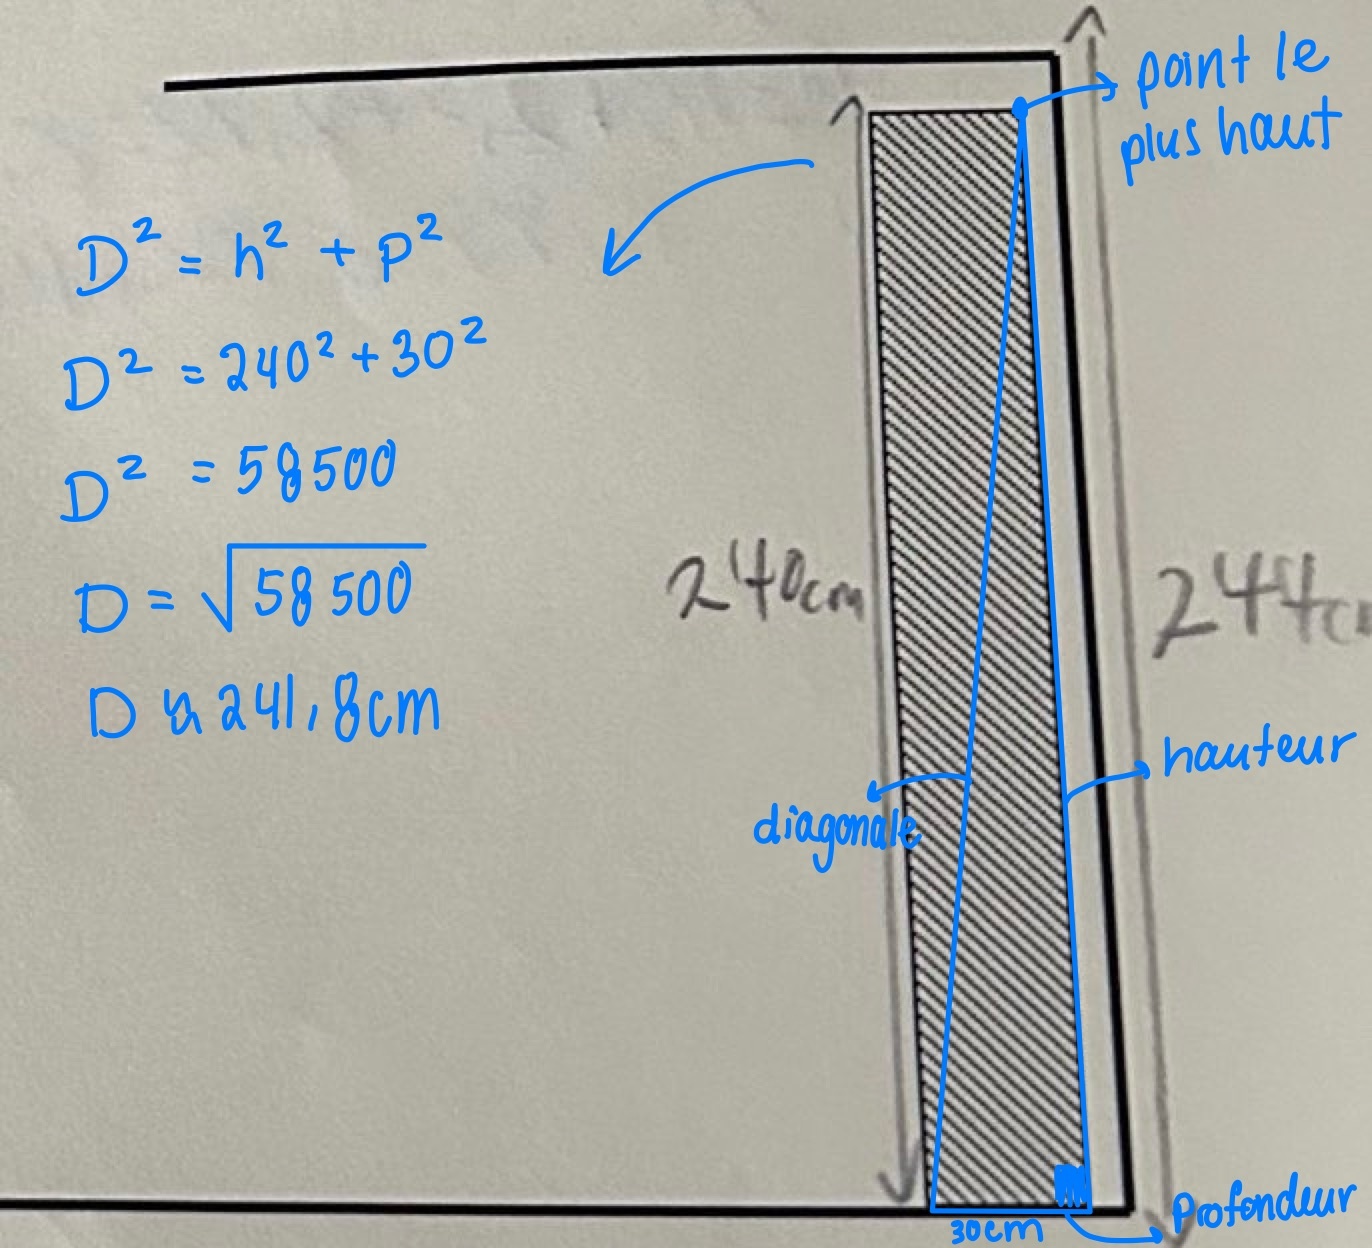 point le
plus haut
D² = h² + p²
D² = 240² + 30²
D² = 58500
D = √58 500
D ≈ 241,8cm
240cm
244c
hauteur
diagonale
30cm
Profondeur